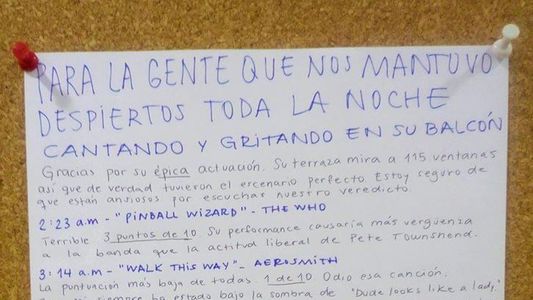 PARA LA GENTE QUE NOS MANTUVO
DESPIERTOS TODA LA NOCHE
CANTANDO Y GRITANDO EN SU BALCÓN
Gracias por su épica actuación. Su terraza mira a 115 ventanas
así que de verdad tuvieron el escenario perfecto. Estoy seguro de
que están ansiosos por escuchar nuestro veredicto.
2:23 a.m - "PINBALL WIZARD" - THE WHO
Terrible 3 puntos de 10 Su performance causaría más vergüenza
a la banda que la actitud liberal de Pete Townshend.
3:14 a.m - "WALK THIS WAY" - AEROSMITH
La puntuación más baja de todas. 1 de 10. Odio esa canción.
siempre ha estado bajo la sombra de "Dude looks like a lady"